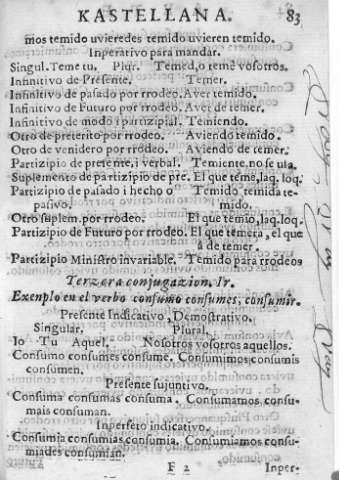 KASTELLANA. 83
mos temido uvieredes temido uvieren temido.
Inperativo para mandar.
Singul. Teme tu. Plur. Temed, o temê vosotros.
Infinitivo de Presente. Temer.
Infinitivo de pasado por rrodeo. Aver temido.
Infinitivo de Futuro por rrodeo. Aver de temer.
Infinitivo de modo i partizipial. Temiendo.
Otro de preterito por rrodeo. Aviendo temido.
Otro de venidero por rrodeo. Aviendo de temer.
Partizipio de presente, i verbal. Temiente no se usa.
Suplemento de partizipio de pre. El que teme, laq. loq.
Partizipio de pasado i hecho o Temido, temida te-
pasivo. mido.
Otro suplem. por rrodeo. El que temio, laq. loq.
Partizipio de Futuro por rrodeo. El que temera, el que
á de temer.
Partizipio Ministro invariable. Temido para rrodeos
Terzera conjugazion, Ir.
Exenplo en el verbo consumo consumes, consumir.
Presente Indicativo, Demostrativo.
Singular, Plural.
Io Tu Aquel. Nosotros vosotros aquellos.
Consumo consumes consume. Consumimos consumis
consumen.
Presente sujuntivo.
Consuma consumas consuma. Consumamos, consu-
mais consuman.
Inperfeto indicativo.
Consumia consumias consumia. Consumiamos consu-
miades consumian.
F 2 Inper-